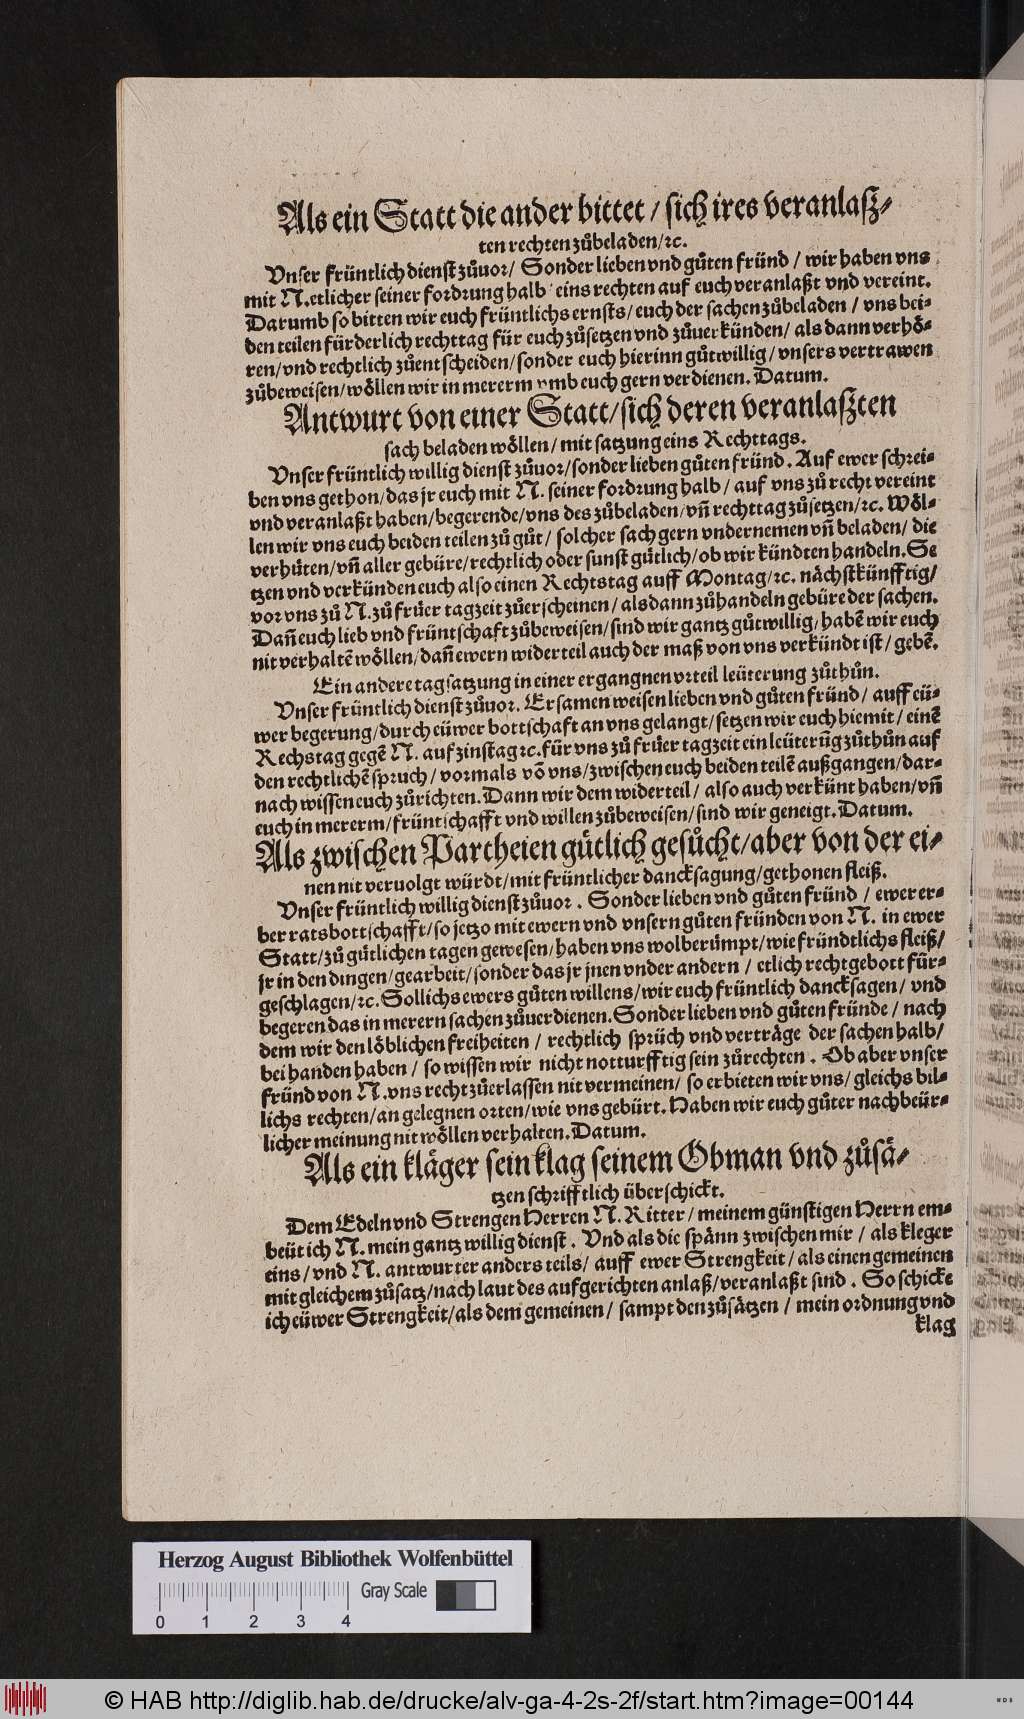 Als ein Statt die ander bittet / sich ires veranlasz⸗
ten rechten zůbeladen/ꝛc.
Vnser früntlich dienst zůuor/ Sonder lieben vnd gůten fründ / wir haben vns
mit N. etlicher seiner fordrung halb eins rechten auf euch veranlaßt vnd vereint.
Darumb so bitten wir euch früntlichs ernsts/ euch der sachen zůbeladen / vns bei⸗
den teilen fürderlich rechttag für euch zůsetzen vnd zůuerkünden/ als dann verhö⸗
ren/vnd rechtlich zůentscheiden/sonder euch hierinn gůtwillig/ vnsers vertrawen
zůbeweisen/wöllen wir in mererm vmb euch gern verdienen. Datum.
Antwurt von einer Statt/sich deren veranlaszten
sach beladen wöllen/mit satzung eins Rechttags.
Vnser früntlich willig dienst zůuor/sonder lieben gůten fründ. Auf ewer schrei⸗
ben vns gethon/das jr euch mit N. seiner fordrung halb/ auf vns zů recht vereint
vnd veranlaßt haben/begerende/vns des zůbeladen/vñ rechttag zůsetzen/ꝛc. Wöl⸗
len wir vns euch beiden teilen zů gůt/ solcher sach gern vndernemen vñ beladen/ die
verhüten/vñ aller gebüre/rechtlich oder sunst gütlich/ob wir kündten handeln. Se
tzen vnd verkünden euch also einen Rechtstag auff Montag/ꝛc. nächstkünfftig/
vor vns zů N. zů früer tagzeit zůerscheinen/ alsdann zůhandeln gebüre der sachen.
Dañ euch lieb vnd früntschaft zůbeweisen/sind wir gantz gůtwillig/habẽ wir euch
nit verhaltẽ wöllen/dañ ewern widerteil auch der maß von vns verkündt ist/ gebẽ.
Ein andere tagsatzung in einer ergangnen vrteil leüterung zůthůn.
Vnser früntlich dienst zůuor. Ersamen weisen lieben vnd gůten fründ/ auff eü⸗
wer begerung/durch eüwer bottschaft an vns gelangt/setzen wir euch hiemit/ einẽ
Rechstag gegẽ N. auf zinstag ꝛc. für vns zů früer tagzeit ein leüterũg zůthůn auf
den rechtlichẽ spruch/ vormals võ vns/zwischen euch beiden teilẽ außgangen/dar⸗
nach wissen euch zůrichten. Dann wir dem widerteil/ also auch verkünt haben/vñ
euch in mererm/früntschafft vnd willen zůbeweisen/sind wir geneigt. Datum.
Als zwischen Partheien gütlich gesůcht/aber von der ei⸗
nen nit veruolgt würdt/mit früntlicher dancksagung/gethonen fleiß.
Vnser früntlich willig dienst zůuor. Sonder lieben vnd gůten fründ / ewer er⸗
ber ratsbottschafft/so jetzo mit ewern vnd vnsern gůten fründen von N. in ewer
Statt/zů gütlichen tagen gewesen/haben vns wolberümpt/wie fründtlichs fleiß/
jr in den dingen/gearbeit/sonder das jr jnen vnder andern / etlich rechtgebott für⸗
geschlagen/ꝛc. Sollichs ewers gůten willens/wir euch früntlich dancksagen/ vnd
begeren das in merern sachen zůuerdienen. Sonder lieben vnd gůten fründe / nach
dem wir den löblichen freiheiten / rechtlich sprüch vnd verträge der sachen halb/
bei handen haben / so wissen wir nicht notturfftig sein zůrechten. Ob aber vnser
fründ von N. vns recht zůerlassen nit vermeinen/ so erbieten wir vns/ gleichs bil⸗
lichs rechten/an gelegnen orten/wie vns gebürt. Haben wir euch gůter nachbeür⸗
licher meinung nit wöllen verhalten. Datum.
Als ein kläger sein klag seinem Obman vnd zůsä⸗
tzen schrifftlich überschickt.
Dem Edeln vnd Strengen Herren N. Ritter/ meinem günstigen Herrn em⸗
beüt ich N. mein gantz willig dienst. Vnd als die spänn zwischen mir / als kleger
eins/vnd N. antwurter anders teils/ auff ewer Strengkeit/ als einen gemeinen
mit gleichem zůsatz/nach laut des aufgerichten anlaß/veranlaßt sind. So schicke
ich eüwer Strengkeit/als dem gemeinen/ sampt den zůsätzen / mein ordnung vnd
klag
Herzog August Bibliothek Wolfenbüttel
Gray Scale
0 1 2 3 4
© HAB http://diglib.hab.de/drucke/alv-ga-4-2s-2f/start.htm?image=00144